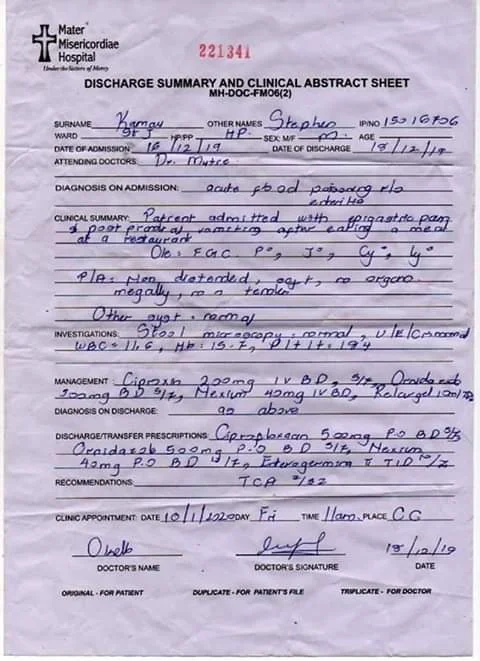 Mater
Misericordiae
Hospital
Under the Sisters of Mercy
221341
DISCHARGE SUMMARY AND CLINICAL ABSTRACT SHEET
MH-DOC-FM06(2)
SURNAME Kamau OTHER NAMES Stephen IP/NO 15016706
WARD St J HP/PP HP. SEX: M/F M. AGE
DATE OF ADMISSION 16/12/19 DATE OF DISCHARGE 18/12/19
ATTENDING DOCTORS: Dr.
DIAGNOSIS ON ADMISSION: acute food poisoning r/o
enteritis
CLINICAL SUMMARY: Patient admitted with epigastric pain
& post prandial vomiting after eating a meal
at a restaurant
O/e: F.G.C. P°, J°, Cy°, Ly°
P/A: Non distended, no organo
megally, non tender
Other syst: normal
INVESTIGATIONS: Stool microscopy: normal, U/E/Cr: normal
WBC = 11.6, Hb: 15.7, Plt: 184
MANAGEMENT: Ciproxin 200mg IV BD, 3/7,
BD 3/7, Nexium 40mg IV BD,
DIAGNOSIS ON DISCHARGE: as above
DISCHARGE/TRANSFER PRESCRIPTIONS: 500mg P.O BD 5/7
500mg P.O BD 5/7, Nexium
40mg P.O BD, Enterogermina II TID
RECOMMENDATIONS: TCA 3/52
CLINIC APPOINTMENT: DATE 10/1/2020 DAY Fri TIME 11am. PLACE CG
18/12/19
DOCTOR'S NAME DOCTOR'S SIGNATURE DATE
ORIGINAL - FOR PATIENT DUPLICATE - FOR PATIENT'S FILE TRIPLICATE - FOR DOCTOR